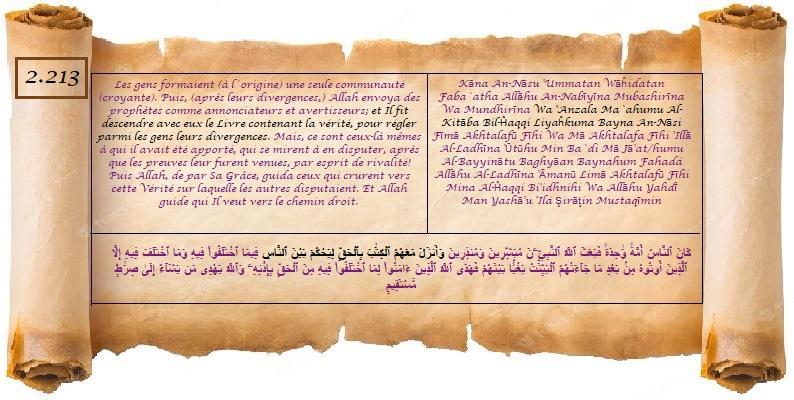 2.213
Les gens formaient (à l`origine) une seule communauté
(croyante). Puis, (après leurs divergences,) Allah envoya des
prophètes comme annonciateurs et avertisseurs; et Il fit
descendre avec eux le Livre contenant la vérité, pour régler
parmi les gens leurs divergences. Mais, ce sont ceux-là mêmes
à qui il avait été apporté, qui se mirent à en disputer, après
que les preuves leur furent venues, par esprit de rivalité!
Puis Allah, de par Sa Grâce, guida ceux qui crurent vers
cette Vérité sur laquelle les autres disputaient. Et Allah
guide qui Il veut vers le chemin droit.
Kāna An-Nāsu 'Ummatan Wāĥidatan
Faba`atha Allāhu An-Nabīyīna Mubashirīna
Wa Mundhirīna Wa 'Anzala Ma`ahumu Al-
Kitāba Bil-Ĥaqqi Liyaĥkuma Bayna An-Nāsi
Fīmā Akhtalafū Fīhi Wa Mā Akhtalafa Fīhi 'Illā
Al-Ladhīna Ūtūhu Min Ba`di Mā Jā'at/humu
Al-Bayyinātu Baghyāan Baynahum Fahadá
Allāhu Al-Ladhīna 'Āmanū Limā Akhtalafū Fīhi
Mina Al-Ĥaqqi Bi'idhnihi Wa Allāhu Yahdī
Man Yashā'u 'Ilá Şirāţin Mustaqīmin
كَانَ ٱلنَّاسُ أُمَّةً وَٰحِدَةً فَبَعَثَ ٱللَّهُ ٱلنَّبِيِّـۧنَ مُبَشِّرِينَ وَمُنذِرِينَ وَأَنزَلَ مَعَهُمُ ٱلْكِتَٰبَ بِٱلْحَقِّ لِيَحْكُمَ بَيْنَ ٱلنَّاسِ فِيمَا ٱخْتَلَفُوا۟ فِيهِ وَمَا ٱخْتَلَفَ فِيهِ إِلَّا
ٱلَّذِينَ أُوتُوهُ مِنۢ بَعْدِ مَا جَآءَتْهُمُ ٱلْبَيِّنَٰتُ بَغْيًۢا بَيْنَهُمْ فَهَدَى ٱللَّهُ ٱلَّذِينَ ءَامَنُوا۟ لِمَا ٱخْتَلَفُوا۟ فِيهِ مِنَ ٱلْحَقِّ بِإِذْنِهِۦ وَٱللَّهُ يَهْدِى مَن يَشَآءُ إِلَىٰ صِرَٰطٍ
مُّسْتَقِيمٍ